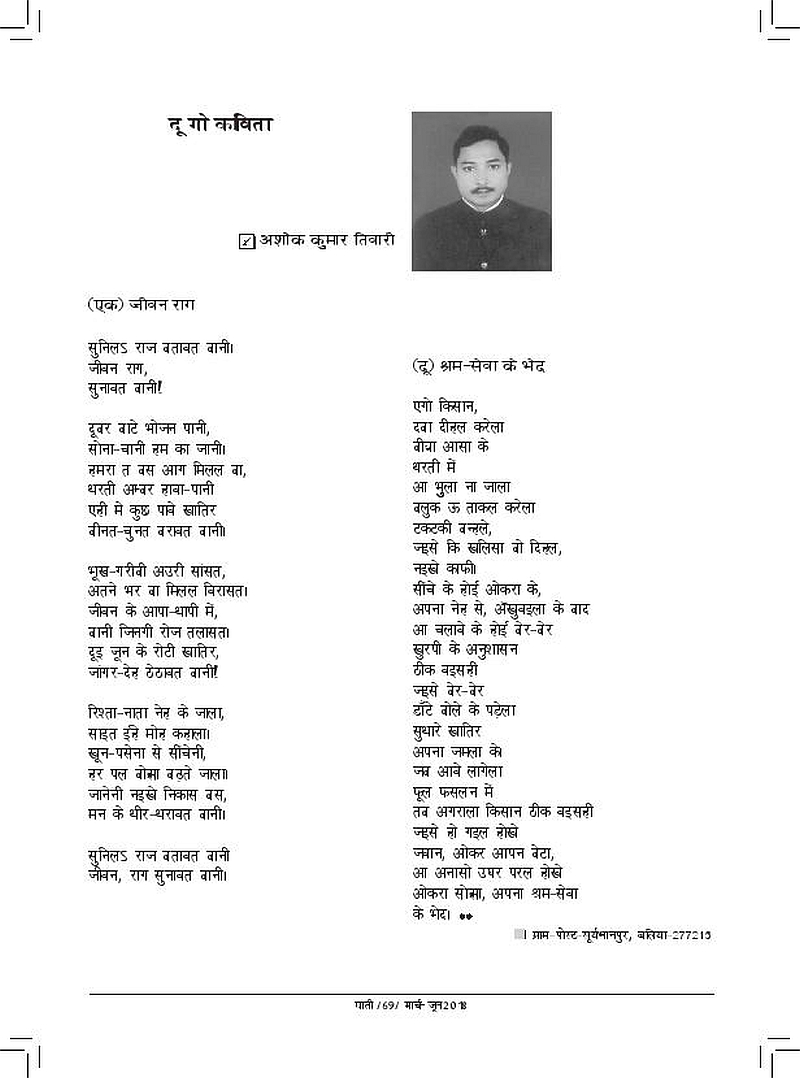 दू गो कविता
अशोक कुमार तिवारी
(एक) जीवन राग
सुनिलऽ राज बतावत बानी।
जीवन राग,
सुनावत बानी!
दूबर बाटे भोजन पानी,
सोना-चानी हम का जानी।
हमरा त बस आग मिलल बा,
धरती अम्बर हावा-पानी
एही मे कुछ पावे खातिर
बीनत-चुनत बरावत बानी।
भूख-गरीबी अउरी सांसत,
अतने भर बा मिलल विरासत।
जीवन के आपा-धापी में,
बानी जिनगी रोज तलासत।
दूइ जून के रोटी खातिर,
जांगर-देह ठेठावत बानी!
रिश्ता-नाता नेह के जाला,
साइत ईहे मोह कहाला।
खून-पसेना से सींचेनी,
हर पल बोझा बढ़ते जाला।
जानेनी नइखे निकास बस,
मन के धीर-धरावत बानी।
सुनिलऽ राज बतावत बानी
जीवन, राग सुनावत बानी।
(दू) श्रम-सेवा के भेद
एगो किसान,
दबा दीहल करेला
बीया आसा के
धरती में
आ भुला ना जाला
बलुक ऊ ताकल करेला
टकटकी बन्हले,
जइसे कि खलिसा बो दिहल,
नइखे काफी।
सींचे के होई ओकरा के,
अपना नेह से, अँखुवइला के बाद
आ चलावे के होई बेर-बेर
खुरपी के अनुशासन
ठीक वइसही
जइसे बेर-बेर
डाँटे बोले के पड़ेला
सुधारे खातिर
अपना जमला के।
जब आवे लागेला
फूल फसलन में
तब अगराला किसान ठीक वइसही
जइसे हो गइल होखे
जवान, ओकर आपन बेटा,
आ अनासो उघर परल होखे
ओकरा सोझा, अपना श्रम-सेवा
के भेद। ♦♦
■। ग्राम-पोस्ट-सूर्यभानपुर, बलिया-277216
पाती /69/ मार्च-जून 2018